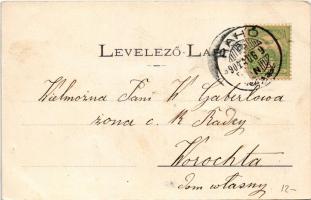 LEVELEZŐ-LA
RAHÓ
Wielmożna Pani W Gaberlowa
żona c. k Radcy
Worochta
dom własny
12-